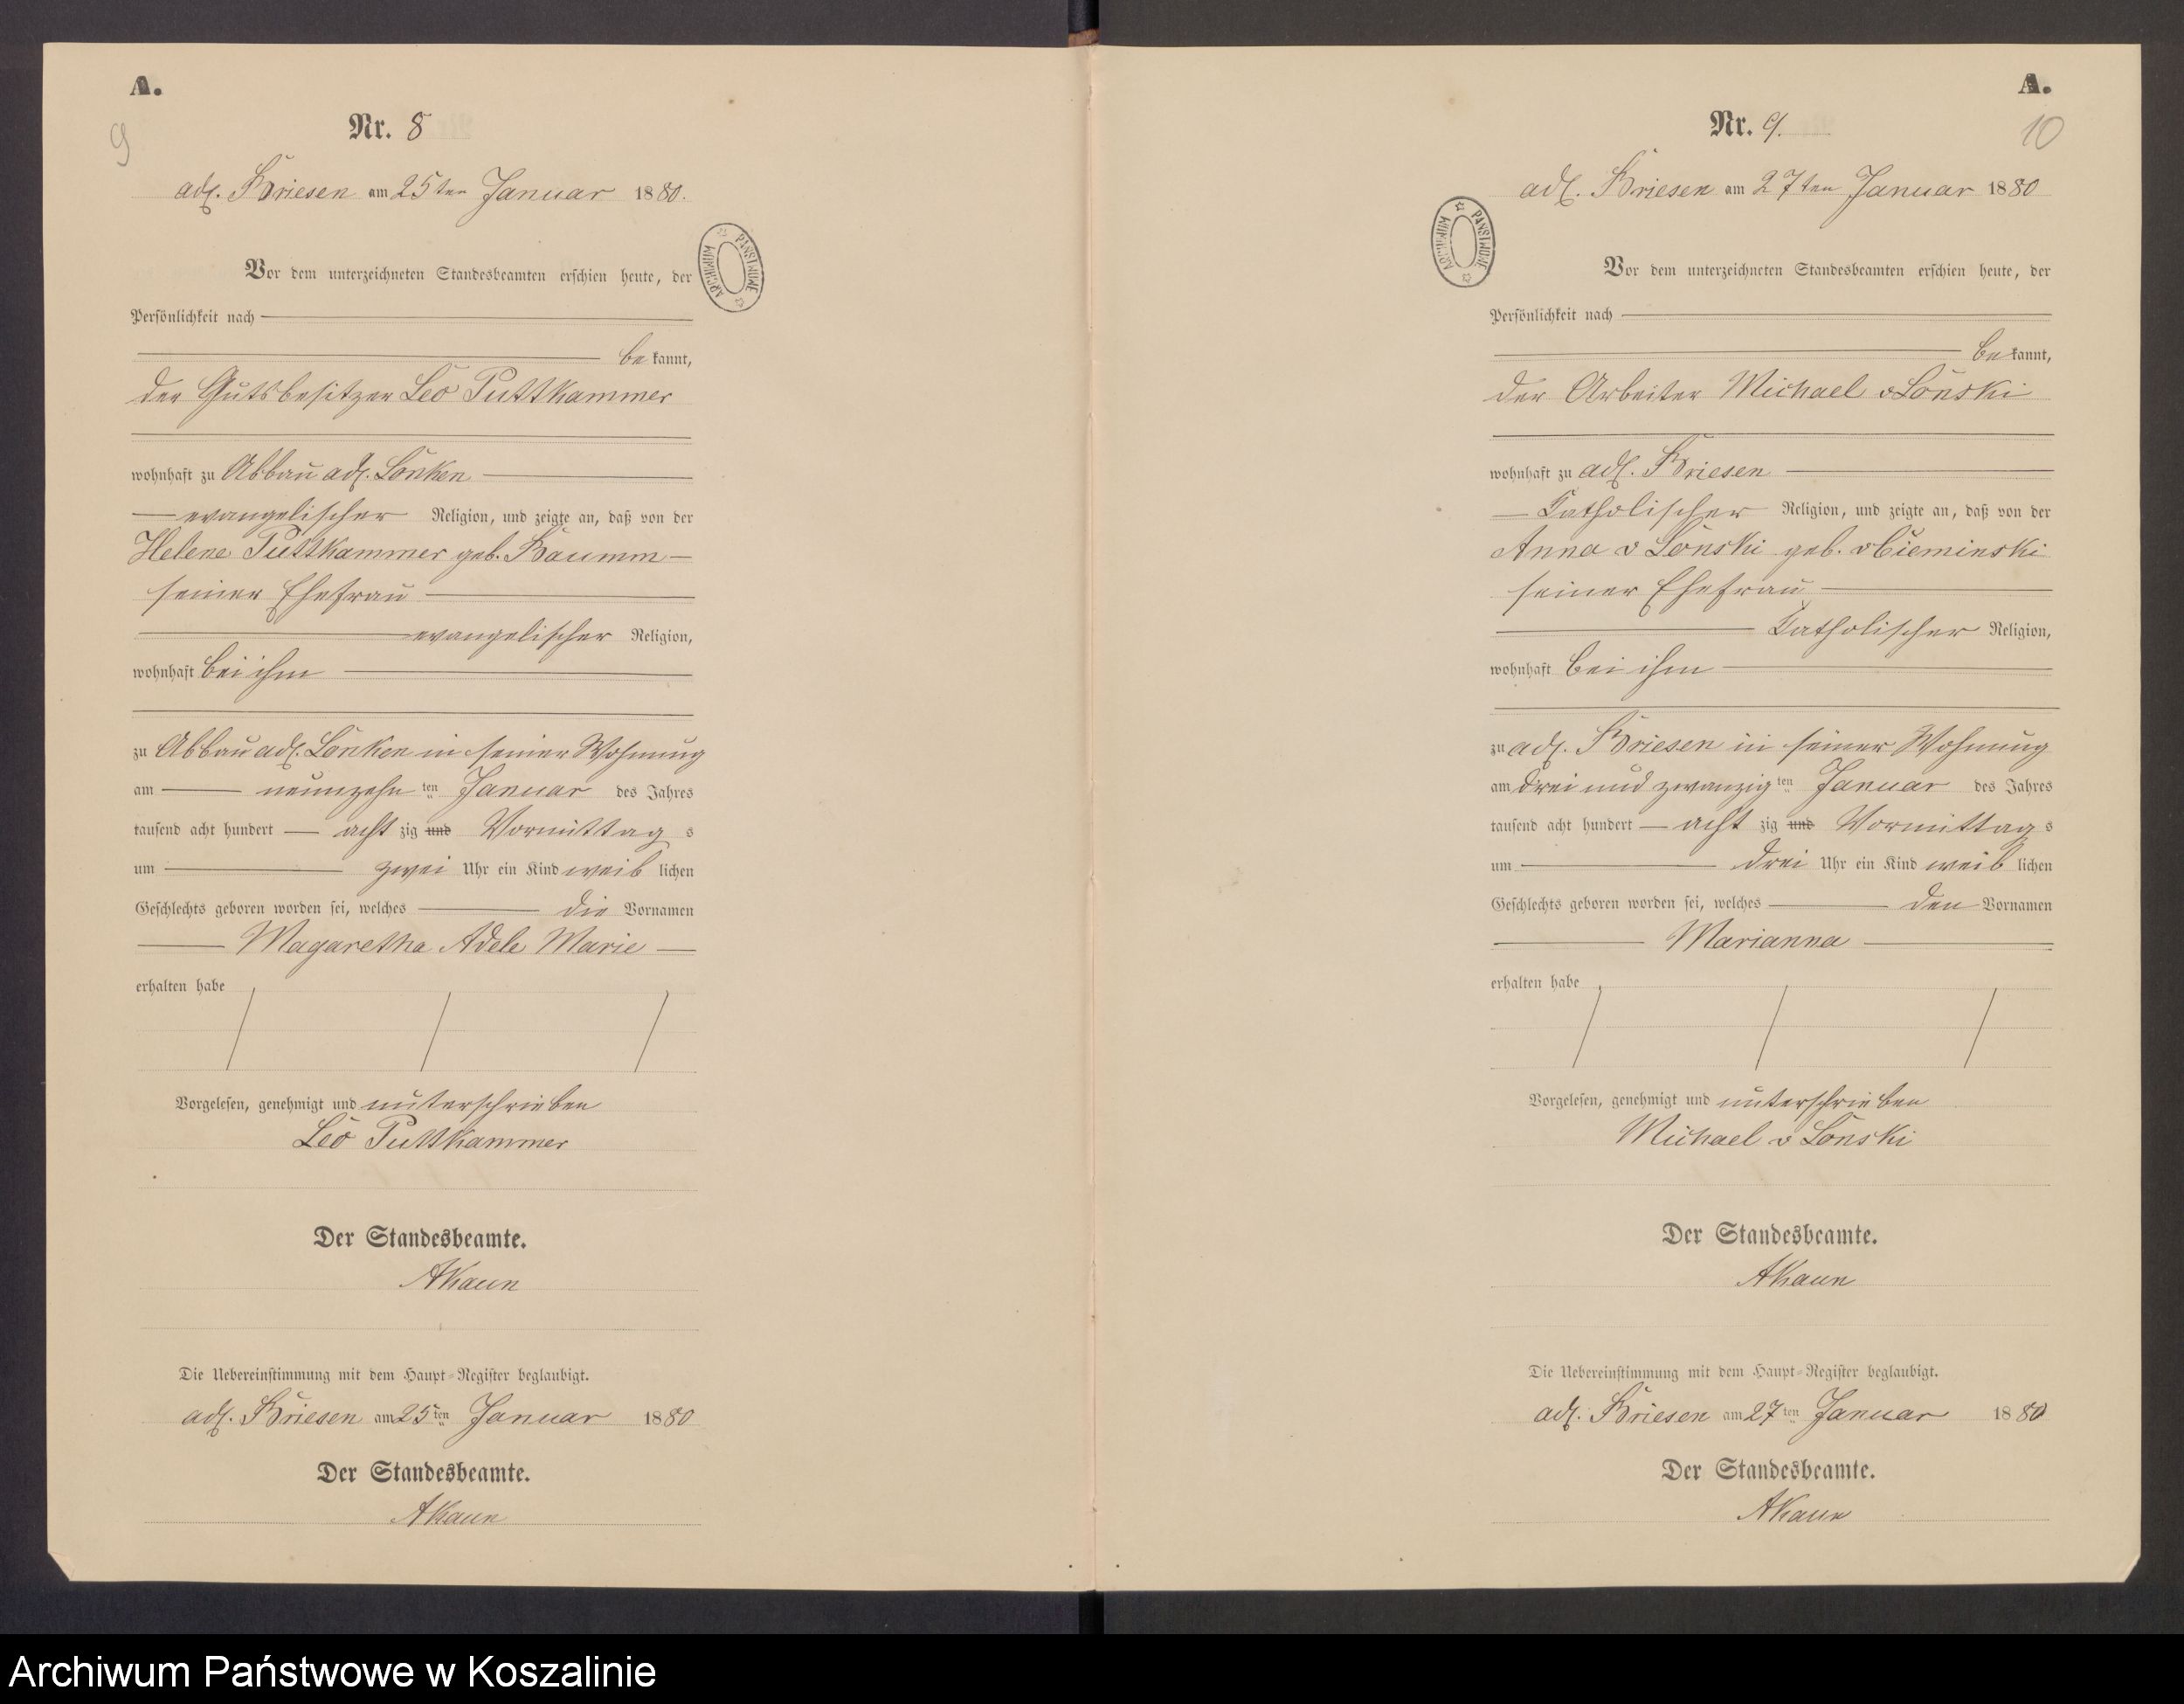 A.
9
Nr. 8
adl. Briesen am 25ten Januar 1880.
Vor dem unterzeichneten Standesbeamten erschien heute, der
Persönlichkeit nach
be kannt,
der Gutsbesitzer Leo Puttkammer
wohnhaft zu Abbau adl. Lonken
evangelischer Religion, und zeigte an, daß von der
Helene Puttkammer geb. Baumm
seiner Ehefrau
evangelischer Religion,
wohnhaft bei ihm
zu Abbau adl. Lonken in seiner Wohnung
am neunzehn ten Januar des Jahres
tausend acht hundert acht zig und Vormittag s
um zwei Uhr ein Kind weib lichen
Geschlechts geboren worden sei, welches die Vornamen
Magaretha Adele Marie
erhalten habe
Vorgelesen, genehmigt und unterschrieben
Leo Puttkammer
Der Standesbeamte.
AKaun
Die Uebereinstimmung mit dem Haupt-Register beglaubigt.
adl. Briesen am 25ten Januar 1880
Der Standesbeamte.
AKaun
ARCHIWUM PAŃSTWOWE
A.
10
Nr. 9.
adl. Briesen am 27ten Januar 1880
Vor dem unterzeichneten Standesbeamten erschien heute, der
Persönlichkeit nach
be kannt,
der Arbeiter Michael v Lonski
wohnhaft zu adl. Briesen
Catholischer Religion, und zeigte an, daß von der
Anna v Lonski geb. v Cieminski
seiner Ehefrau
Catholischer Religion,
wohnhaft bei ihm
zu adl. Briesen in seiner Wohnung
am drei und zwanzig ten Januar des Jahres
tausend acht hundert acht zig und Vormittag s
um drei Uhr ein Kind weib lichen
Geschlechts geboren worden sei, welches den Vornamen
Marianna
erhalten habe
Vorgelesen, genehmigt und unterschrieben
Michael v Lonski
Der Standesbeamte.
AKaun
Die Uebereinstimmung mit dem Haupt-Register beglaubigt.
adl. Briesen am 27ten Januar 1880
Der Standesbeamte.
AKaun
ARCHIWUM PAŃSTWOWE
Archiwum Państwowe w Koszalinie